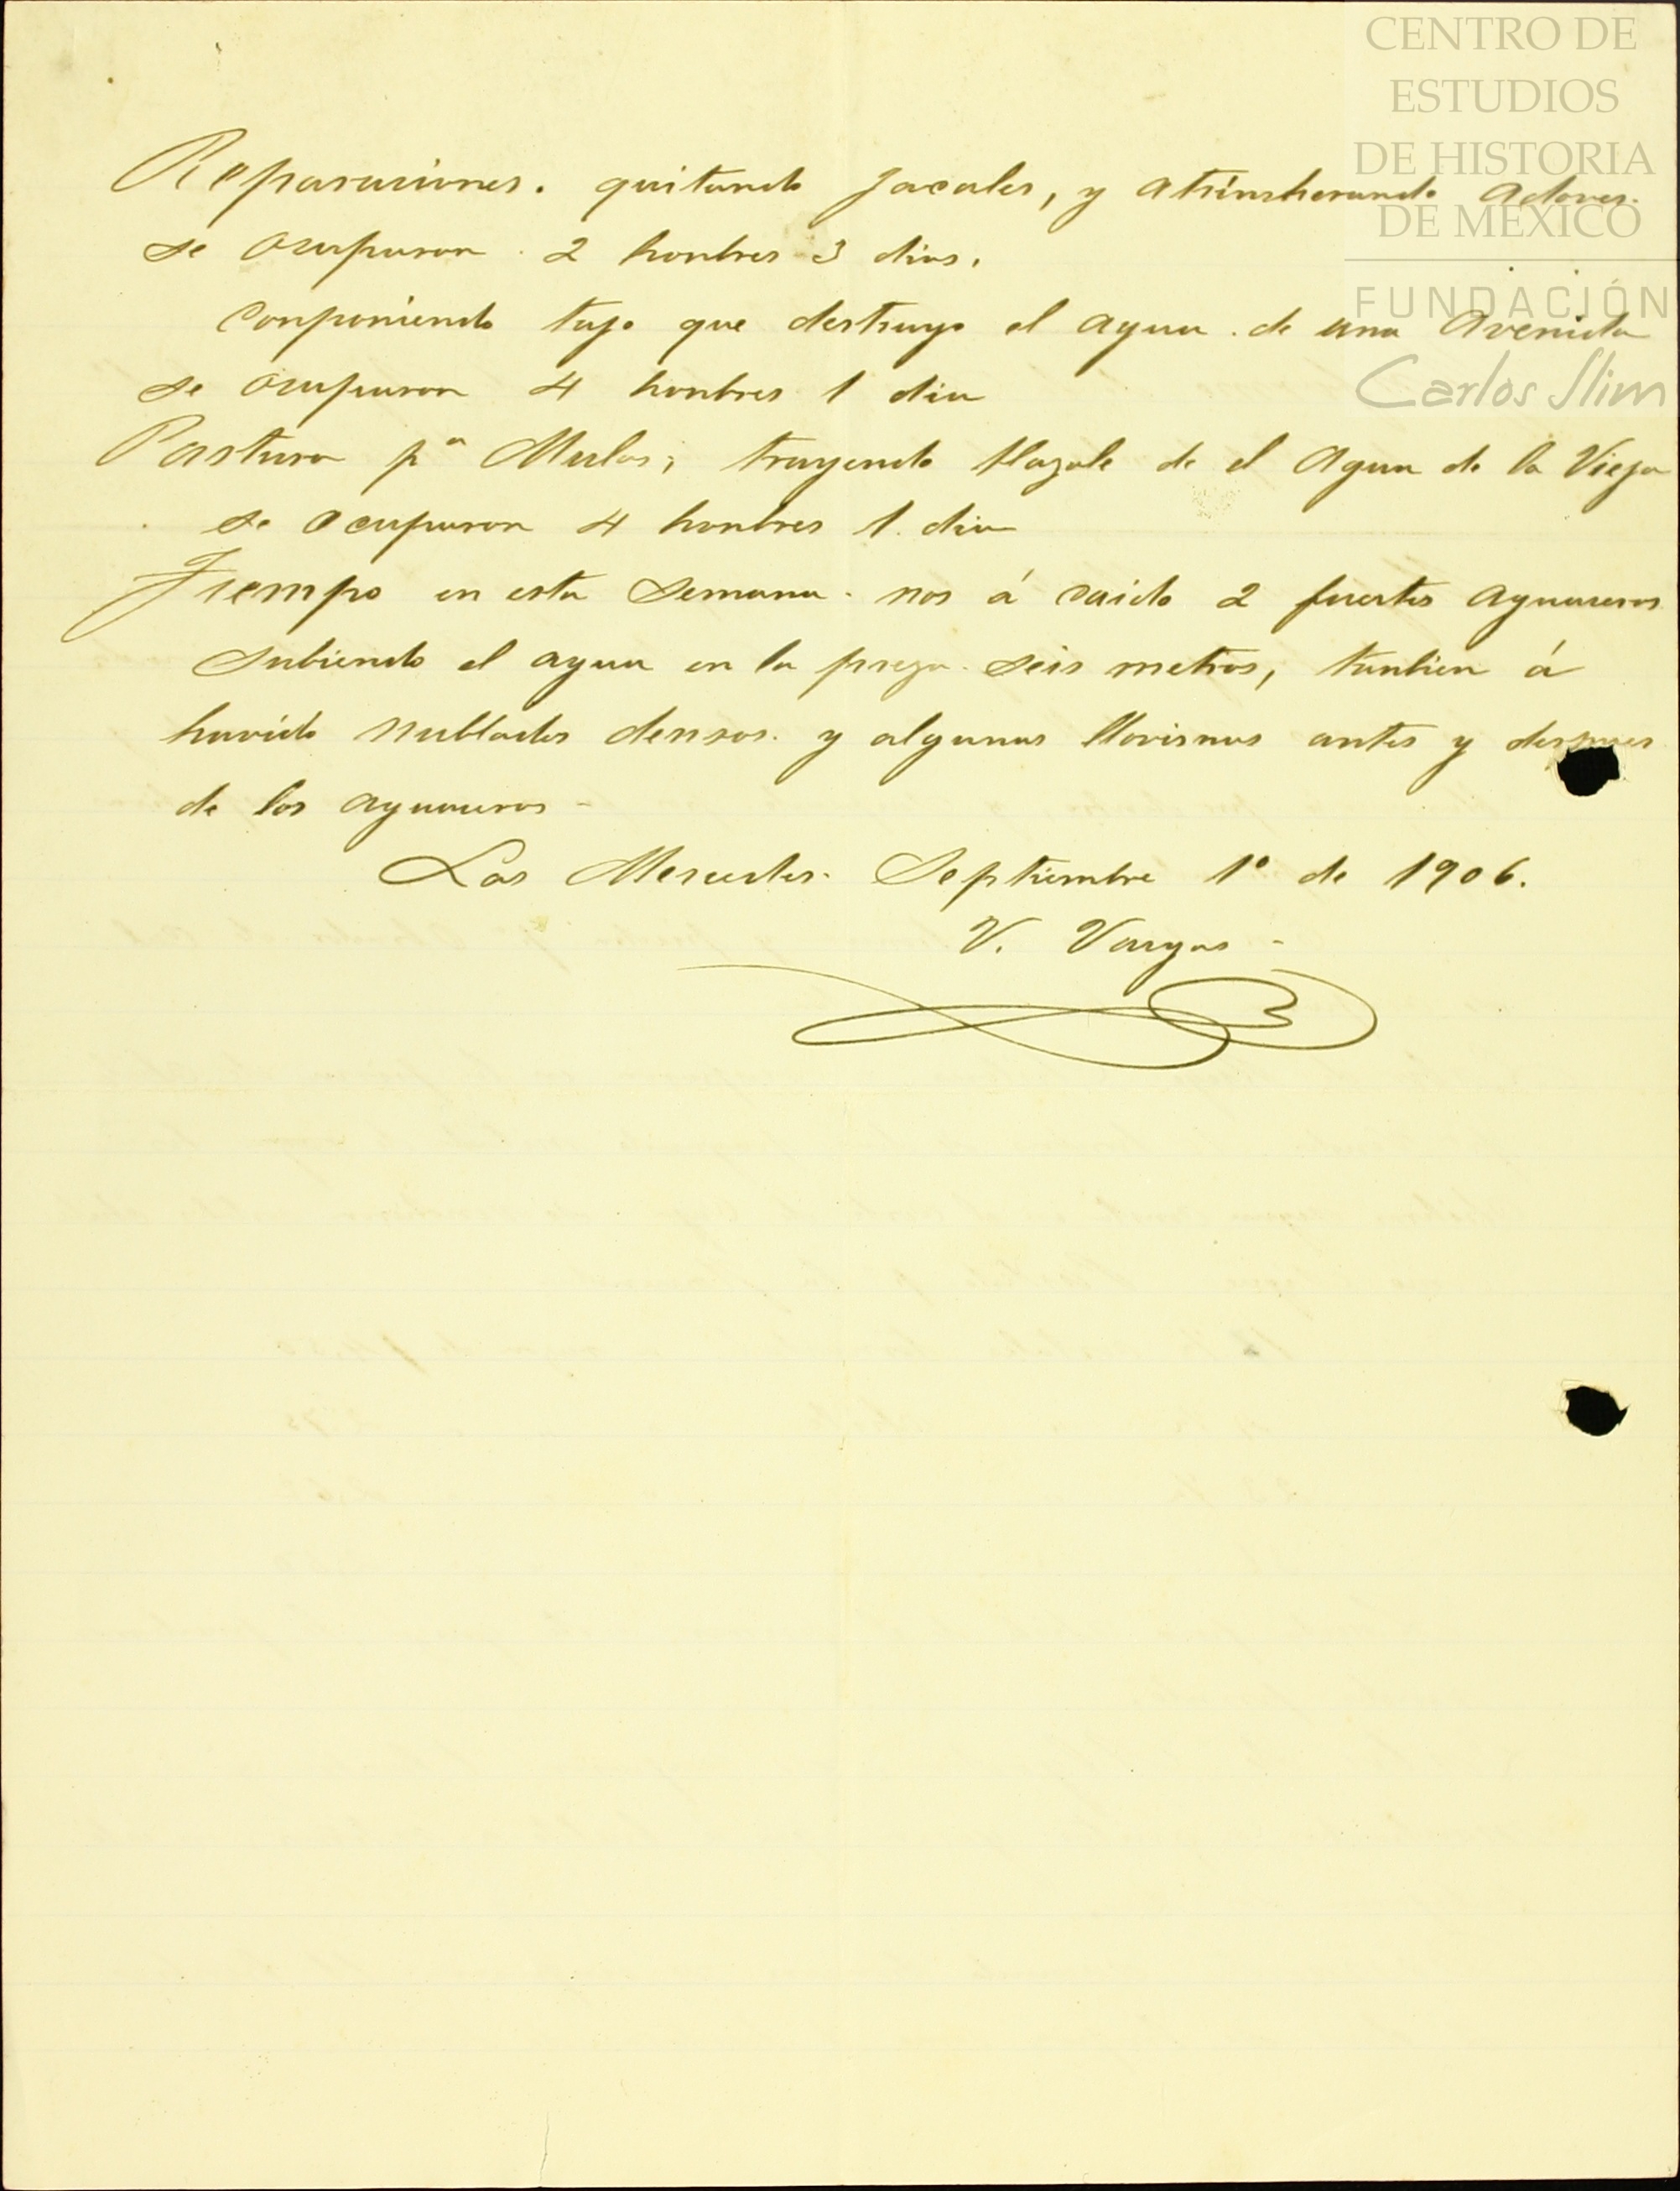 CENTRO DE
ESTUDIOS
DE HISTORIA
DE MÉXICO
FUNDACIÓN
Carlos Slim
Reparaciones. quitando Jacales, y atrincherando adoves.
se ocuparon. 2 honbres 3 dias.
Conponiendo tajo que destruyo el agua. de una Avenida
se ocuparon 4 honbres 1 dia
Pastura pª Mulas; trayendo tlazole de el Agua de la Vieja
se ocuparon 4 honbres 1. dia
Tiempo en esta Semana. nos á caido 2 fuertes aguaceros
subiendo el agua en la preza. seis metros, tanbien á
havido Nublados densos. y algunas llovisnas antes y despues
de los aguaceros -
Las Mercedes. Septiembre 1º de 1906.
V. Vargas -